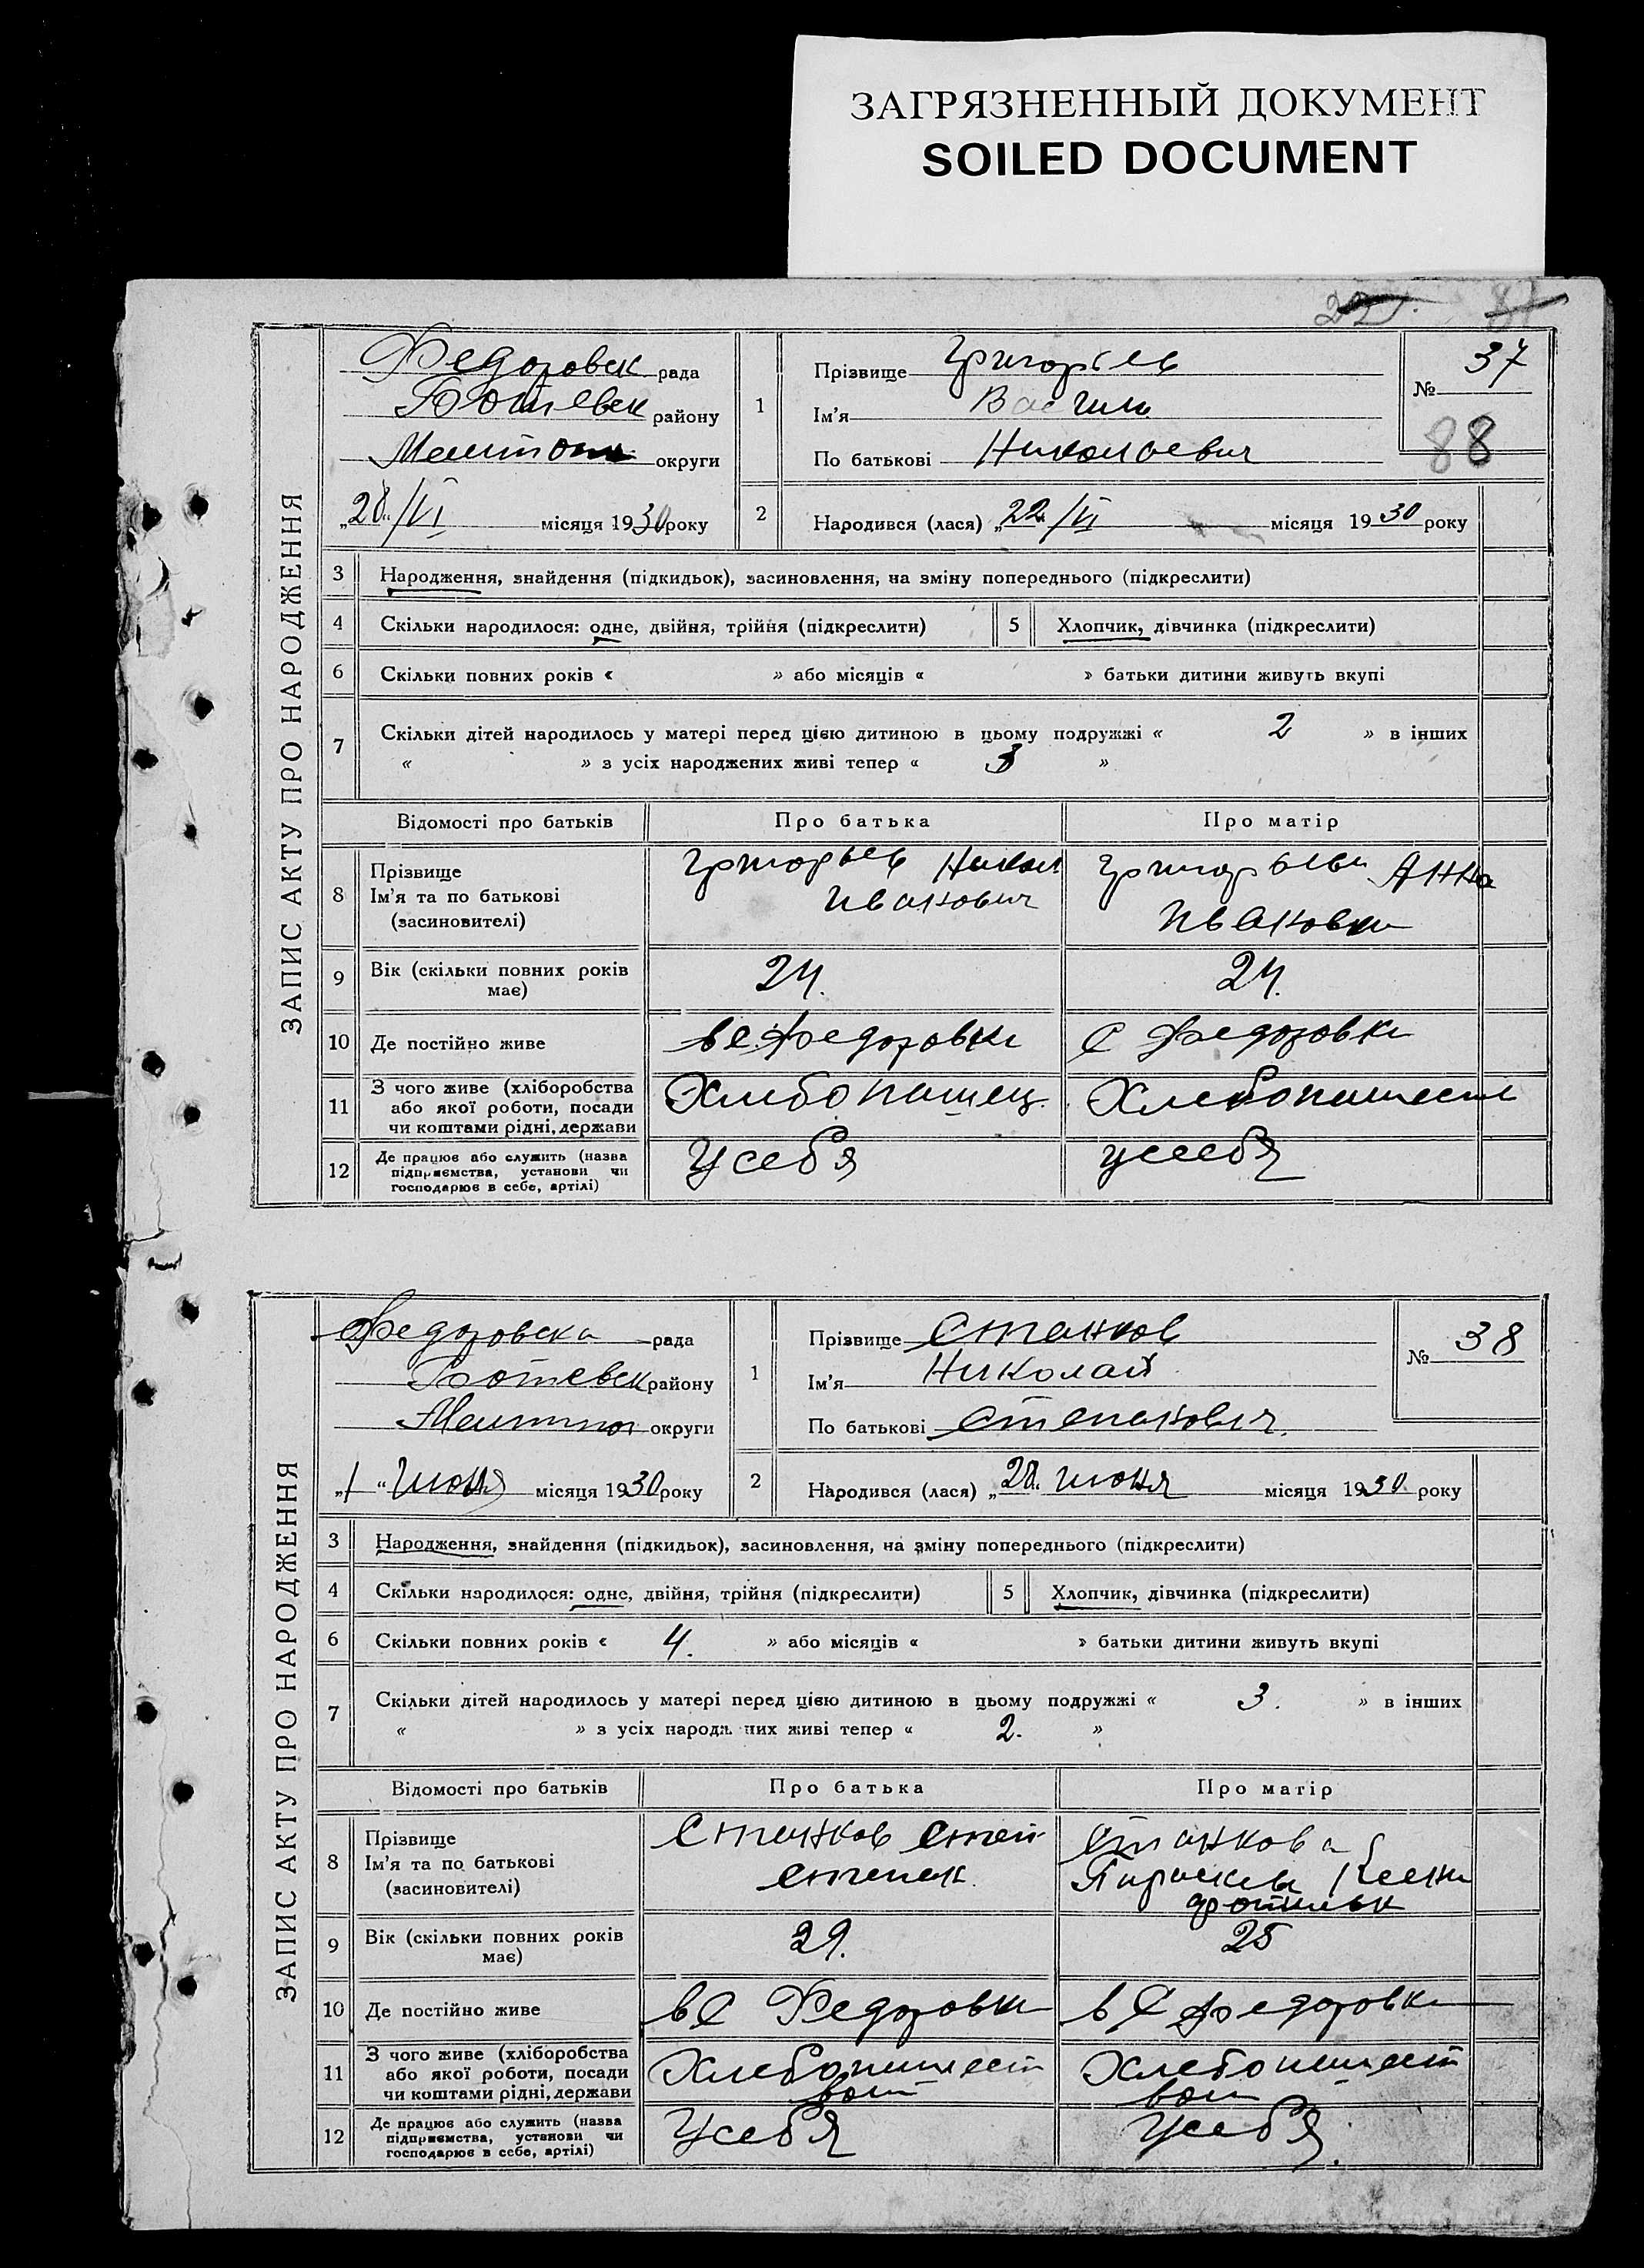 ЗАГРЯЗНЕННЫЙ ДОКУМЕНТ
SOILED DOCUMENT
88
ЗАПИС АКТУ ПРО НАРОДЖЕННЯ
Федоровск рада
Ботиевск району
округи
„28“/VI місяця 1930 року
1 Прізвище Григорьев
Ім'я Васили
По батькові Николаевич
№ 37
2 Народився (лася) „22“/VI місяця 1930 року
3 Народження, знайдення (підкидьок), засиновлення, на зміну попереднього (підкреслити)
4 Скільки народилося: одне, двійня, трійня (підкреслити) 5 Хлопчик, дівчинка (підкреслити)
6 Скільки повних років « » або місяців « » батьки дитини живуть вкупі
7 Скільки дітей народилось у матері перед цією дитиною в цьому подружжі « 2 » в інших
« » з усіх народжених живі тепер « 3 »
Відомості про батьків Про батька Про матір
8 Прізвище
Ім'я та по батькові
(засиновителі)
Григорьев Никол
Иванович
Григорьева Анна
Ивановна
9 Вік (скільки повних років
має)
24. 24.
10 Де постійно живе в с. Федоровки с Федоровки
11 З чого живе (хліборобства
або якої роботи, посади
чи коштами рідні, держави
Хлебопашец. Хлебопашест
12 Де працює або служить (назва
підприємства, установи чи
господарює в себе, артілі)
У себя у себя
ЗАПИС АКТУ ПРО НАРОДЖЕННЯ
Федоровска рада
Ботиевск району
округи
„1“ июля місяця 1930 року
1 Прізвище Станков
Ім'я Николай
По батькові Степанович.
№ 38
2 Народився (лася) „28“ июня місяця 1930 року
3 Народження, знайдення (підкидьок), засиновлення, на зміну попереднього (підкреслити)
4 Скільки народилося: одне, двійня, трійня (підкреслити) 5 Хлопчик, дівчинка (підкреслити)
6 Скільки повних років « 4. » або місяців « » батьки дитини живуть вкупі
7 Скільки дітей народилось у матері перед цією дитиною в цьому подружжі « 3. » в інших
« » з усіх народжених живі тепер « 2. »
Відомості про батьків Про батька Про матір
8 Прізвище
Ім'я та по батькові
(засиновителі)
Станков Степ
Степан.
Станкова
Параскева
9 Вік (скільки повних років
має)
29. 25
10 Де постійно живе в с Федоровки в с Федоровки
11 З чого живе (хліборобства
або якої роботи, посади
чи коштами рідні, держави
Хлебопашест
вом
Хлебопашест
вом
12 Де працює або служить (назва
підприємства, установи чи
господарює в себе, артілі)
У себя У себя.